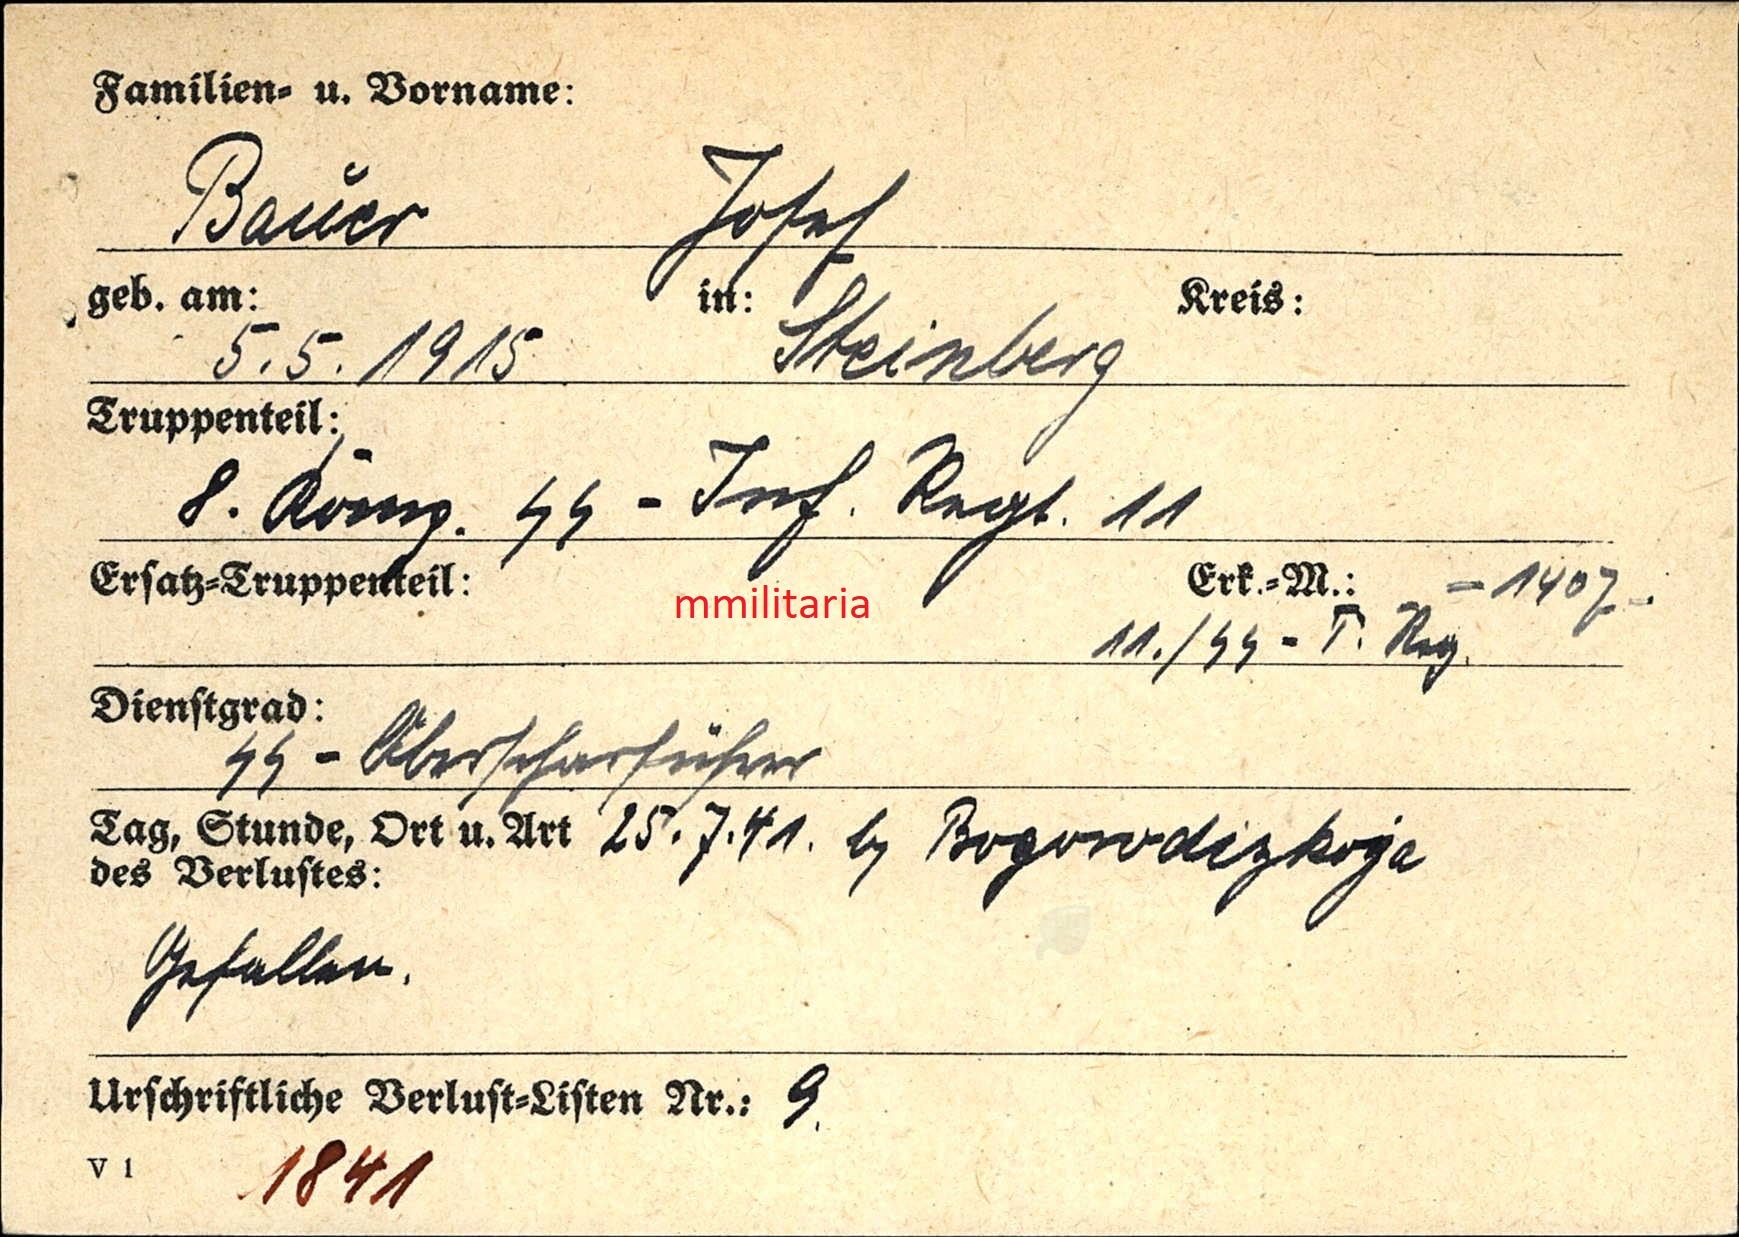 Familien- u. Vorname:
Bauer Josef
geb. am: in: Kreis:
5.5.1915 Steinberg
Truppenteil:
8. Komp. SS - Inf. Regt. 11
Ersatz-Truppenteil: Erk.-M.: - 1407 -
mmilitaria
11./SS - T. Reg.
Dienstgrad:
SS - Oberscharführer
Tag, Stunde, Ort u. Art 25.7.41. by Bogorodizkoje
des Verlustes:
Gefallen.
Urschriftliche Verlust-Listen Nr.: 9.
V 1 1841